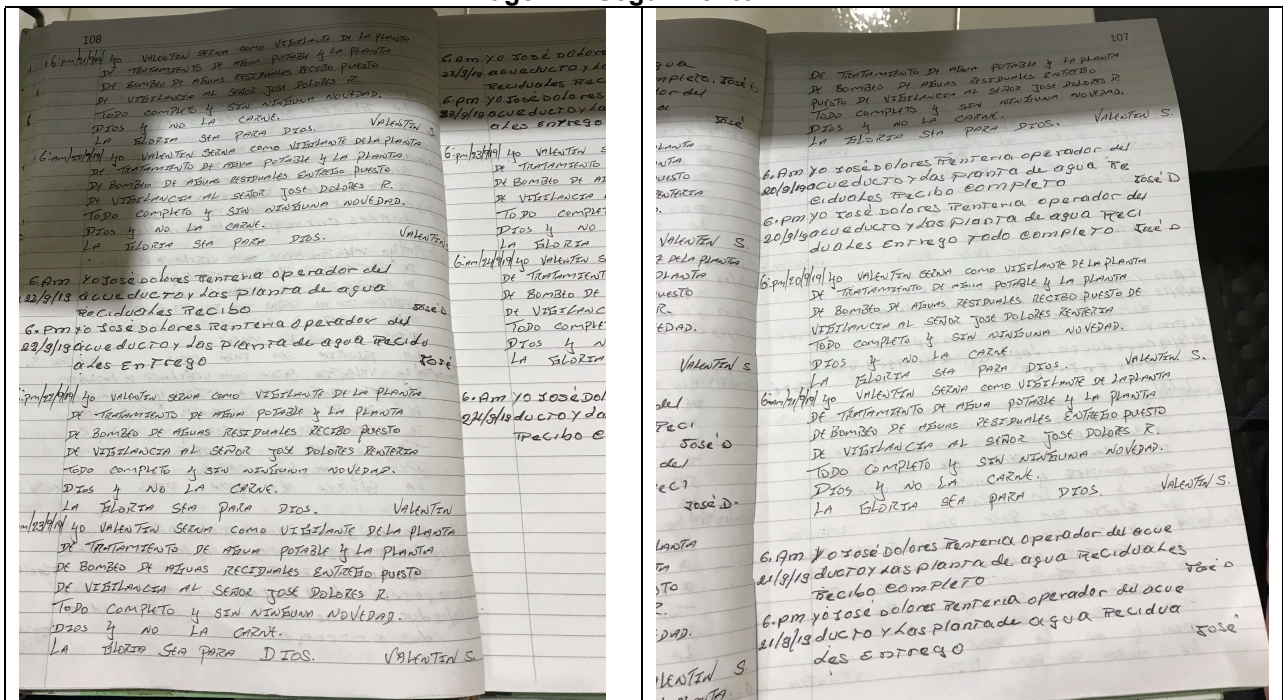 108
6:pm/21/9/19/ yo VALENTIN SERNA COMO VIGILANTE DE LA PLANTA
DE TRATAMIENTO DE AGUA POTABLE y LA PLANTA
DE BOMBEO DE AGUAS RESIDUALES RECIBO PUESTO
DE VIGILANCIA AL SEÑOR JOSE DOLORES R.
TODO COMPLETO y SIN NINGUNA NOVEDAD.
DIOS y NO LA CARNE.
LA GLORIA SEA PARA DIOS. VALENTIN S.
6:am/22/9/19/ yo VALENTIN SERNA COMO VIGILANTE DE LA PLANTA
DE TRATAMIENTO DE AGUA POTABLE y LA PLANTA
DE BOMBEO DE AGUAS RESIDUALES ENTREGO PUESTO
DE VIGILANCIA AL SEÑOR JOSE DOLORES R.
TODO COMPLETO y SIN NINGUNA NOVEDAD.
DIOS y NO LA CARNE.
LA GLORIA SEA PARA DIOS. VALENTIN
6.Am Yo José Dolores Renteria operador del
22/9/19 acueducto y Las planta de agua
Reciduales Recibo José D
6.Pm yo José Dolores Renteria operador del
22/9/19 acueducto y Las planta de agua Recidu
ales Entrego José
6:pm/22/9/19/ yo VALENTIN SERNA COMO VIGILANTE DE LA PLANTA
DE TRATAMIENTO DE AGUA POTABLE y LA PLANTA
DE BOMBEO DE AGUAS RESIDUALES RECIBO PUESTO
DE VIGILANCIA AL SEÑOR JOSE DOLORES RENTERIA
TODO COMPLETO y SIN NINGUNA NOVEDAD.
DIOS y NO LA CARNE.
LA GLORIA SEA PARA DIOS. VALENTIN
m/23/9/19/ yo VALENTIN SERNA COMO VIGILANTE DE LA PLANTA
DE TRATAMIENTO DE AGUA POTABLE y LA PLANTA
DE BOMBEO DE AGUAS RECIDUALES ENTREGO PUESTO
DE VIGILANCIA AL SEÑOR JOSE DOLORES R.
TODO COMPLETO y SIN NINGUNA NOVEDAD.
DIOS y NO LA CARNE.
LA GLORIA SEA PARA DIOS. VALENTIN S.
6.Am Yo José Dolore
23/9/19 acueducto y La
Reciduales Reci
6.pm Yo José Dolores
23/9/19 acueducto y La
ales Entrego
6:pm/23/9/19/ yo VALENTIN S
DE TRATAMIENTO
DE BOMBEO DE A
DE VIGILANCI
TODO COMPLET
DIOS y NO
LA GLORIA
6:am/24/9/19/ yo VALENTIN S
DE TRATAMIENT
DE BOMBEO DE
DE VIGILANC
TODO COMPLE
DIOS y N
LA GLORIA
6.Am YO JOSÉ DOL
24/9/19 ducto y La
Recibo C
gua
mpleto. José D
dor del
José
LANTA
NTA
UESTO
RENTERIA
VALENTIN S.
E DE LA PLANTA
PLANTA
UESTO
R.
EDAD.
VALENTIN S
del
Reci
José D
del
eci
José D.
LANTA
TO
DAD.
LENTIN S.
107
DE TRATAMIENTO DE AGUA POTABLE y LA PLANTA
DE BOMBEO DE AGUAS RESIDUALES ENTREGO
PUESTO DE VIGILANCIA AL SEÑOR JOSE DOLORES R
TODO COMPLETO y SIN NINGUNA NOVEDAD.
DIOS y NO LA CARNE.
LA GLORIA SEA PARA DIOS. VALENTIN S.
6.Am Yo José Dolores Renteria operador del
20/9/19 acueducto y Las Planta de agua Re
ciduales Recibo completo José D
6.pm yo José Dolores Renteria operador del
20/9/19 acueducto y Las planta de agua Reci
duales Entrego Todo completo José D
6:pm/20/9/19/ yo VALENTIN SERNA COMO VIGILANTE DE LA PLANTA
DE TRATAMIENTO DE AGUA POTABLE y LA PLANTA
DE BOMBEO DE AGUAS RESIDUALES RECIBO PUESTO DE
VIGILANCIA AL SEÑOR JOSE DOLORES RENTERIA
TODO COMPLETO y SIN NINGUNA NOVEDAD.
DIOS y NO LA CARNE.
LA GLORIA SEA PARA DIOS. VALENTIN. S.
6:am/21/9/19/ yo VALENTIN SERNA COMO VIGILANTE DE LA PLANTA
DE TRATAMIENTO DE AGUA POTABLE y LA PLANTA
DE BOMBEO DE AGUAS RESIDUALES ENTREGO PUESTO
DE VIGILANCIA AL SEÑOR JOSE DOLORES R.
TODO COMPLETO y SIN NINGUNA NOVEDAD.
DIOS y NO LA CARNE.
LA GLORIA SEA PARA DIOS. VALENTIN S.
6.Am Yo José Dolores Renteria operador del acue
21/9/19 ducto y Las planta de agua Reciduales
Recibo completo José D
6.pm yo José Dolores Renteria operador del acue
21/9/19 ducto y Las planta de agua Recidua
les Entrego José